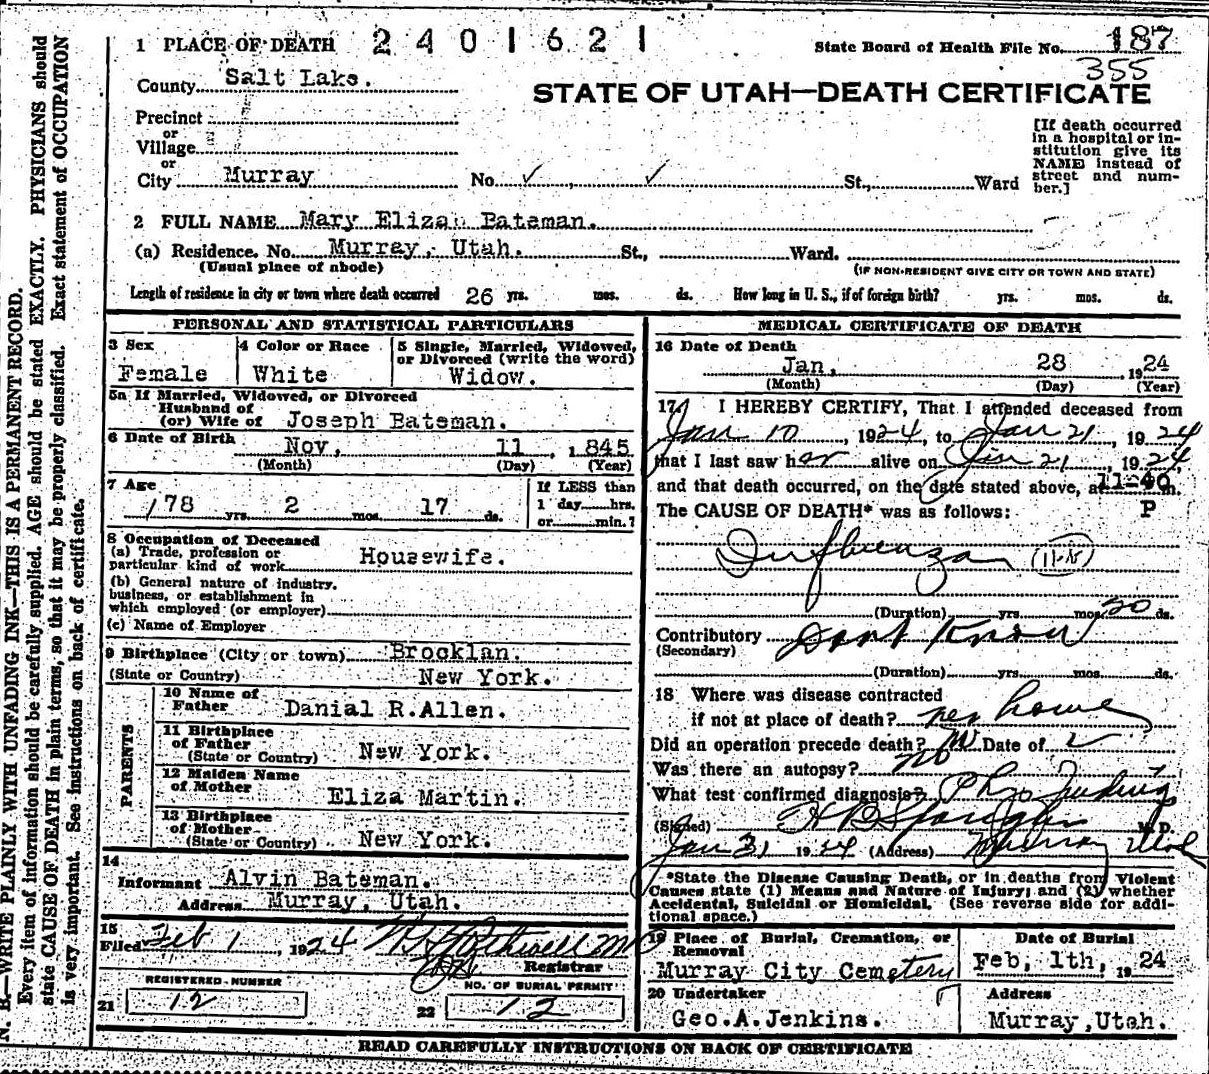 1 PLACE OF DEATH 2401621 State Board of Health File No. 187
355
County Salt Lake.
STATE OF UTAH—DEATH CERTIFICATE
Precinct
or
Village
or
City Murray No. ✓ , ✓ St., Ward
[If death occurred
in a hospital or in-
stitution give its
NAME instead of
street and num-
ber.]
2 FULL NAME Mary Elizah Bateman.
(a) Residence. No. Murray, Utah. St., Ward.
(Usual place of abode) (IF NON-RESIDENT GIVE CITY OR TOWN AND STATE)
Length of residence in city or town where death occurred 26 yrs. mos. ds. How long in U. S., if of foreign birth? yrs. mos. ds.
PERSONAL AND STATISTICAL PARTICULARS
3 Sex
Female
4 Color or Race
White
5 Single, Married, Widowed,
or Divorced (write the word)
Widow.
5a If Married, Widowed, or Divorced
Husband of
(or) Wife of Joseph Bateman.
6 Date of Birth Nov, 11 , 1845
(Month) (Day) (Year)
7 Age
78 yrs. 2 mos. 17 ds.
If LESS than
1 day hrs.
or min.?
8 Occupation of Deceased
(a) Trade, profession or
particular kind of work Housewife.
(b) General nature of industry.
business, or establishment in
which employed (or employer)
(c) Name of Employer
9 Birthplace (City or town) Brocklan.
(State or Country) New York.
PARENTS
10 Name of
Father Danial R.Allen.
11 Birthplace
of Father
(State or Country) New York.
12 Maiden Name
of Mother Eliza Martin.
13 Birthplace
of Mother
(State or Country) New York.
14
Informant Alvin Bateman.
Address Murray, Utah.
15
Filed Feb 1 , 1924
Registrar
REGISTERED NUMBER
21 12
NO. OF BURIAL PERMIT
22 12
MEDICAL CERTIFICATE OF DEATH
16 Date of Death
Jan, 28 1924
(Month) (Day) (Year)
17 I HEREBY CERTIFY, That I attended deceased from
Jan 10 , 1924, to Jan 21 , 1924
that I last saw her alive on Jan 21 , 1924,
and that death occurred, on the date stated above, at 11-40 m.
The CAUSE OF DEATH* was as follows: P
Influenza (11-B)
(Duration) yrs. mos. 20 ds.
Contributory Dont Know
(Secondary)
(Duration) yrs. mos. ds.
18 Where was disease contracted
if not at place of death? home
Did an operation precede death? No Date of
Was there an autopsy? No
What test confirmed diagnosis?
(Signed) M.D.
Jan 31 1924 (Address) Murray Utah
*State the Disease Causing Death, or in deaths from Violent
Causes state (1) Means and Nature of Injury; and (2) whether
Accidental, Suicidal or Homicidal. (See reverse side for addi-
tional space.)
19 Place of Burial, Cremation, or
Removal
Murray City Cemetery
Date of Burial
Feb, 1th, 1924
20 Undertaker
Geo.A.Jenkins.
Address
Murray,Utah.
READ CAREFULLY INSTRUCTIONS ON BACK OF CERTIFICATE
N. B.—WRITE PLAINLY WITH UNFADING INK—THIS IS A PERMANENT RECORD.
Every item of information should be carefully supplied. AGE should be stated EXACTLY. PHYSICIANS should
state CAUSE OF DEATH in plain terms, so that it may be properly classified. Exact statement of OCCUPATION
is very important. See instructions on back of certificate.